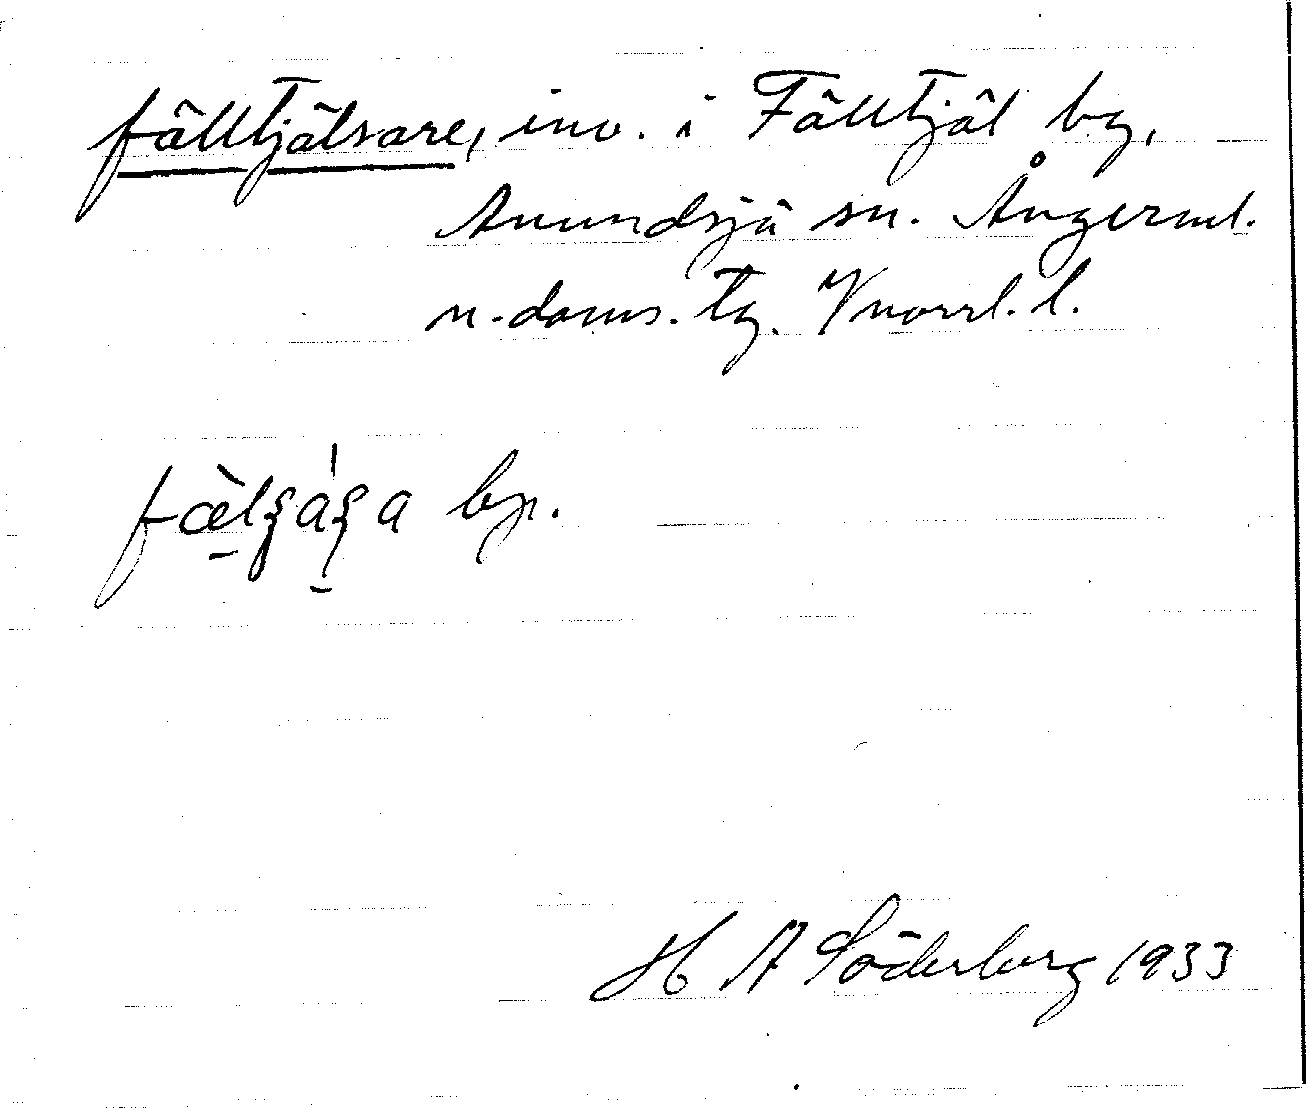 fälltjälsare, inv. i Fälltjäl by,
Anundsjö sn. Ångerml.
n. doms. tg. Vnorrl. l.
bp.
H A Söderberg 1933